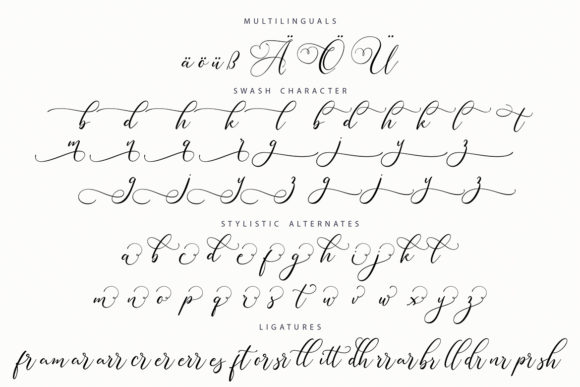 MULTILINGUALS
ä ö ü ß Ä Ö Ü
SWASH CHARACTER
b d h k l b d h k l t
m n q r g j y z
g j y z g j y z
STYLISTIC ALTERNATES
a b c d e f g h i j k l
m n o p q r s t u v w x y z
LIGATURES
fr am ar arr cr er err es ft or sr tl itt dh rr ar br ll dr nr pr sh